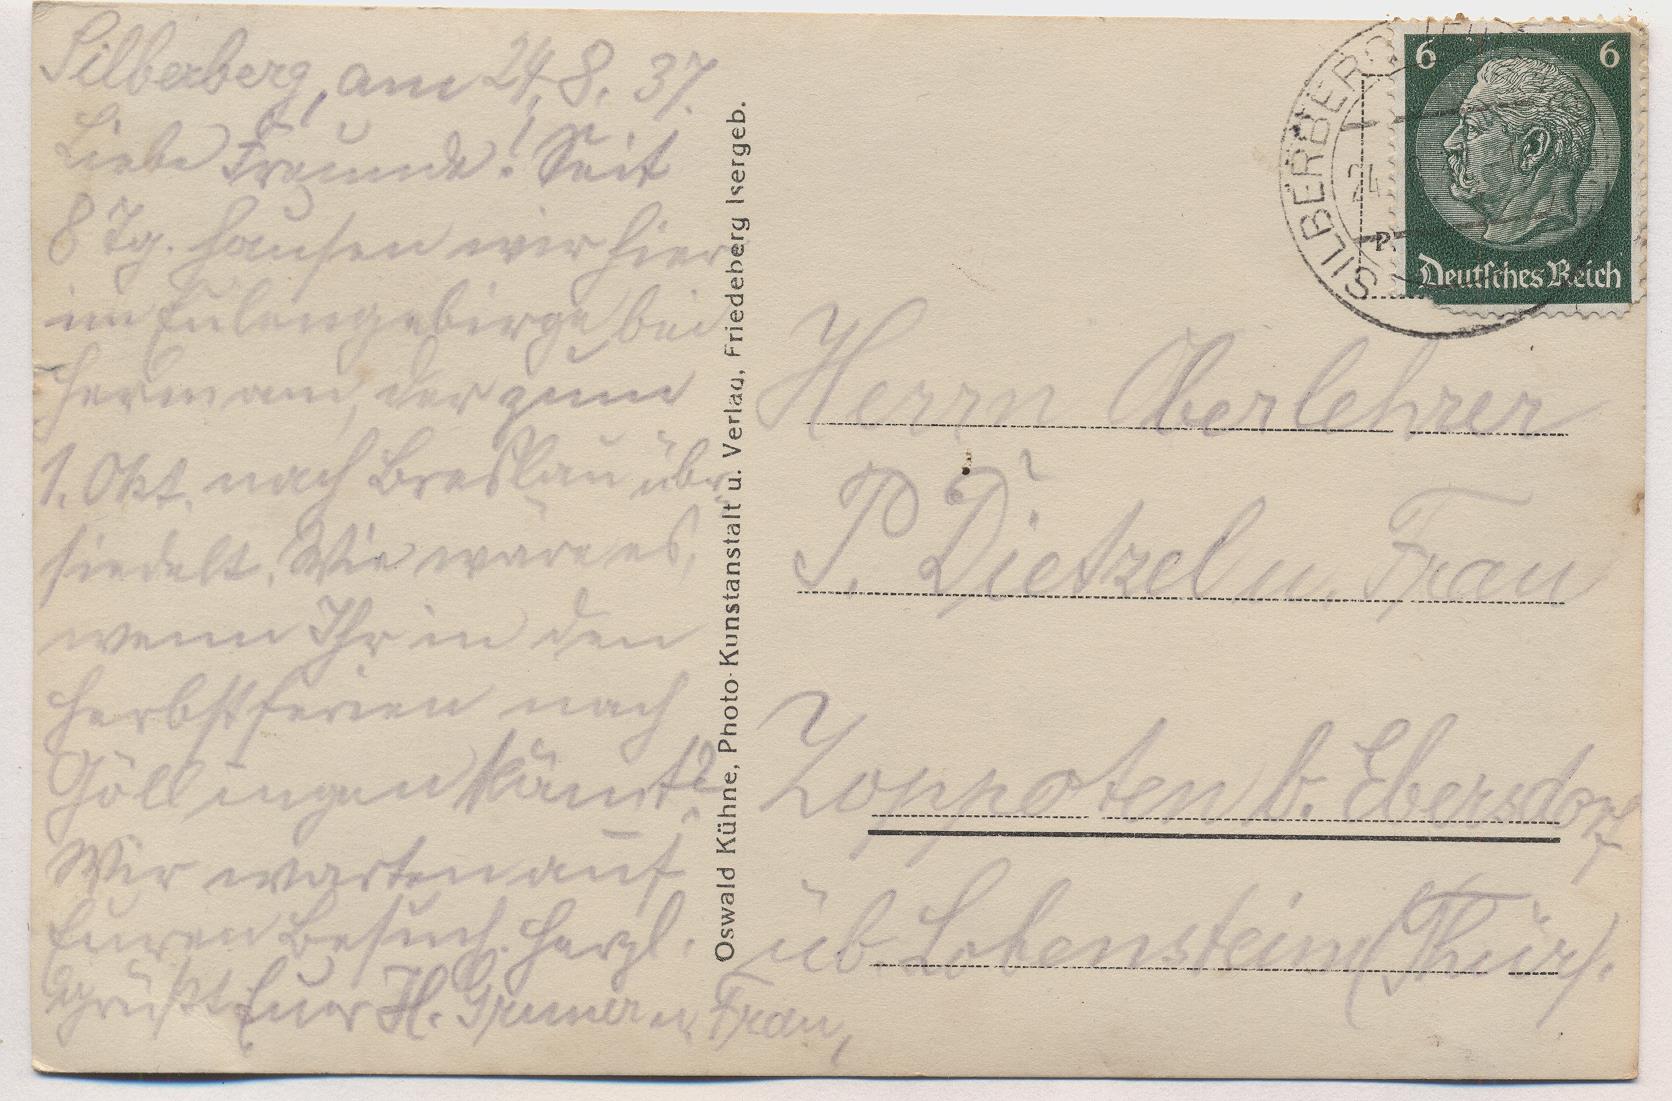 Silberberg, am 24.8.37.
Liebe Freunde! Seit
8 Tg. hausen wir hier
im Eulengebirge bei
Hermann, der zum
1. Okt. nach Breslau über-
siedelt. Wie wäre es,
wenn Ihr in den
Herbstferien nach
Göllingen kämt?
Wir warten auf
Euren Besuch. Herzl.
grüßt Euer H. u. Frau,
Oswald Kühne, Photo-Kunstanstalt u. Verlag, Friedeberg Isergeb.
SILBERBERG
24.
P.
6 6
Deutsches Reich
Herrn Oberlehrer
P. Dietzel u. Frau
Zoppoten b. Ebersdorf
üb. Lobenstein (Thür).